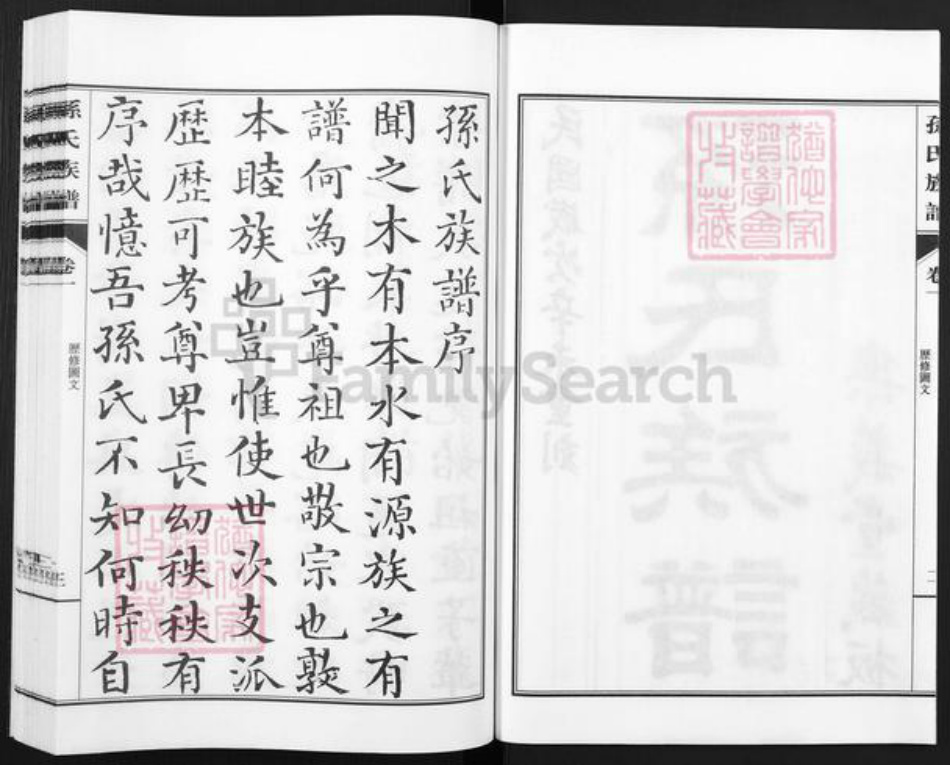 孫氏族譜
卷一
歷修圖文
二
孫氏族譜序
聞之木有本水有源族之有
譜何為乎尊祖也敬宗也敦
本睦族也豈惟使世次支派
歷歷可考尊卑長幼秩秩有
序哉憶吾孫氏不知何時自
孫氏族譜
卷一
歷修圖文
三
FamilySearch